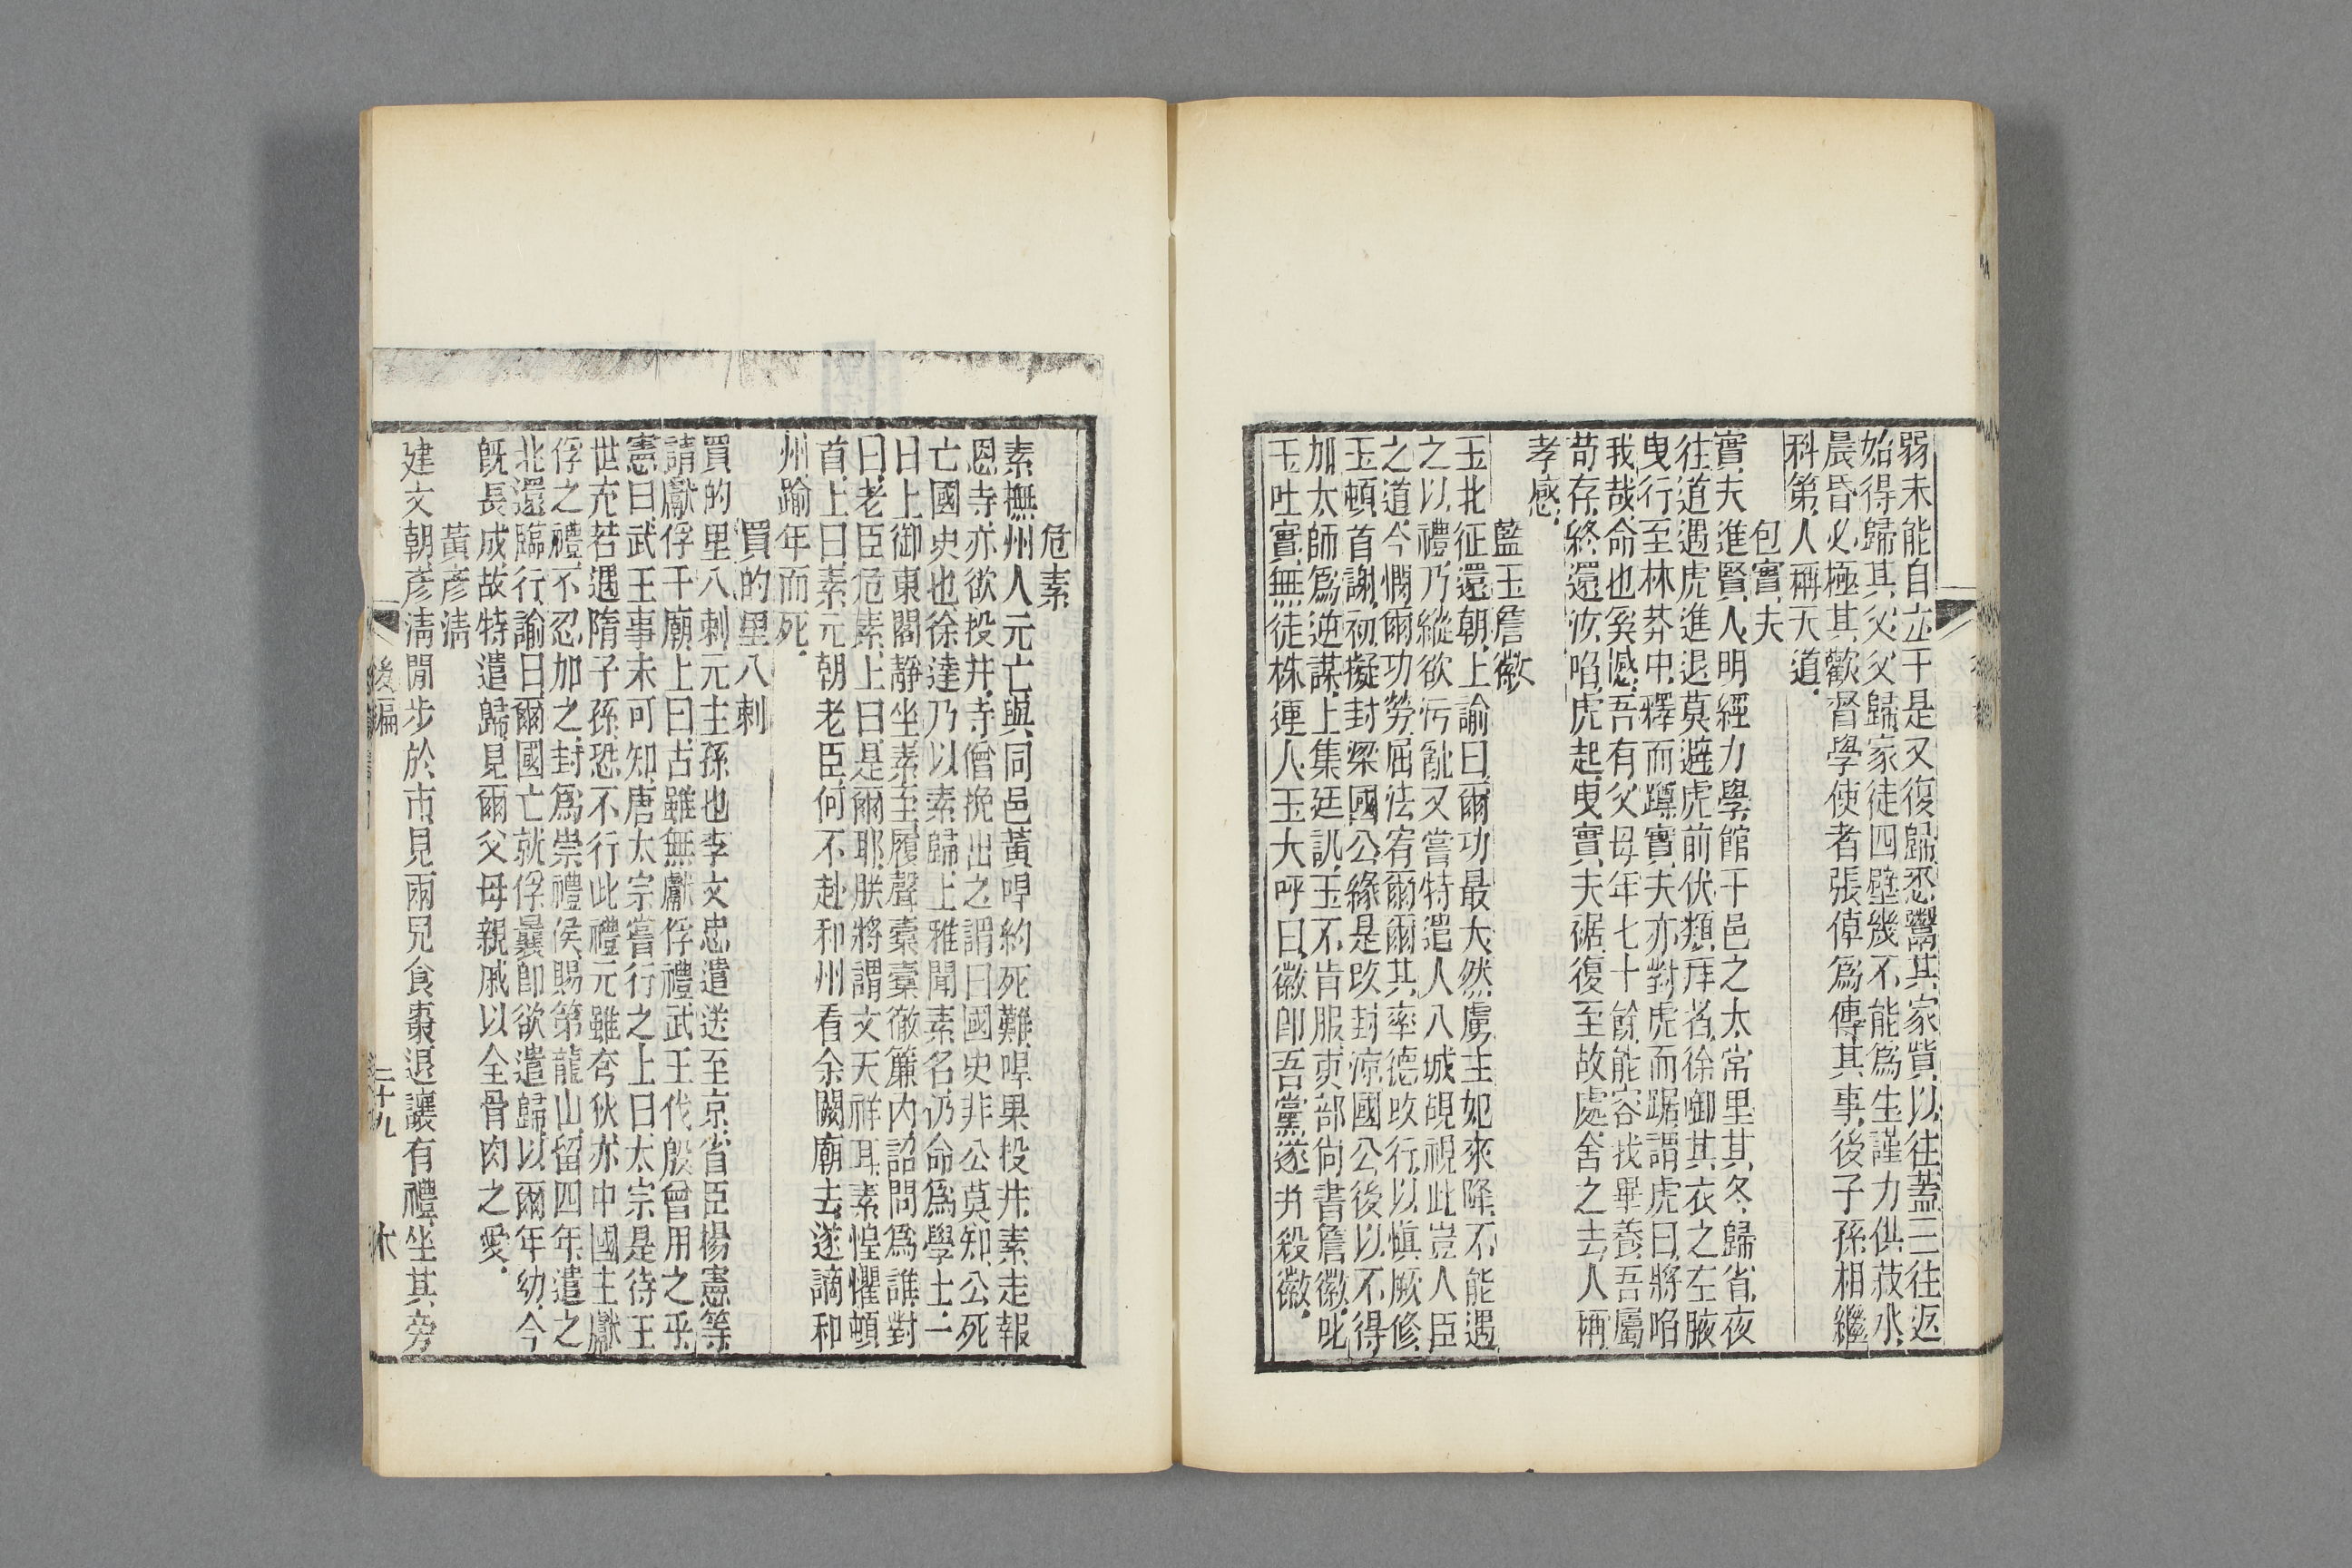 弱未能自立于是又復歸悉鬻其家貲以往蓋三往返
始得歸其父父歸家徒四壁幾不能爲生謹力供菽水
晨昏必極其歡督學使者張倬爲傳其事後子孫相繼
科第人稱天道
包實夫
實夫進賢人明經力學館于邑之太常里其冬歸省夜
往道遇虎進退莫避虎前伏類拜者徐啣其衣之左腋
曳行至林莽中釋而蹲實夫亦對虎而踞謂虎曰將啗
我哉命也奚憾吾有父母年七十餘能容我畢養吾屬
苟存終還汝啗虎起曳實夫裾復至故處舍之去人稱
孝感
藍玉詹徽
玉北征還朝上諭曰爾功最大然虜主妃來降不能遇
之以禮乃縱欲污亂又嘗特遣人入城覘視此豈人臣
之道今憫爾功勞屈法宥爾爾其率德改行以愼厥修
玉頓首謝初擬封梁國公緣是改封涼國公後以不得
加太師爲逆謀上集廷訊玉不肯服吏部尚書詹徽叱
玉吐實無徒株連人玉大呼曰徽卽吾黨遂并殺徽
危素
素撫州人元亡與同邑黃㫷約死難㫷果投井素走報
恩寺亦欲投井寺僧挽出之謂曰國史非公莫知公死
亡國史也徐達乃以素歸上雅聞素名仍命爲學士一
日上御東閣靜坐素至履聲橐橐徹簾內詔問爲誰對
曰老臣危素上曰是爾耶朕將謂文天祥耳素惶懼頓
首上曰素元朝老臣何不赴和州看余闕廟去遂謫和
州踰年而死
買的里八剌
買的里八剌元主孫也李文忠遣送至京省臣楊憲等
請獻俘于廟上曰古雖無獻俘禮武王伐殷曾用之乎
憲曰武王事未可知唐太宗嘗行之上曰太宗是待王
世充若遇隋子孫恐不行此禮元雖夸狄亦中國主獻
俘之禮不忍加之封爲崇禮侯賜第龍山留四年遣之
北還臨行諭曰爾國亡就俘曩卽欲遣歸以爾年幼今
旣長成故特遣歸見爾父母親戚以全骨肉之愛
黃彥淸
建文朝彥淸閒步於市見兩兒食棗退讓有禮坐其旁
後編
二十九